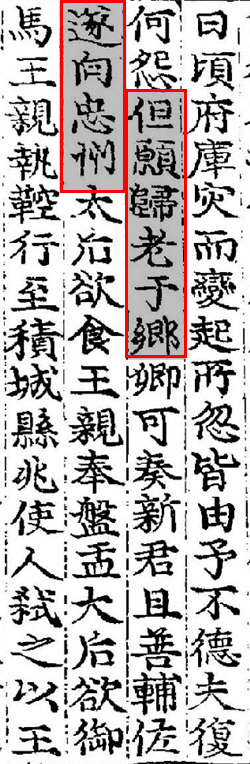 曰頃府庫災而變起所忽皆由予不德夫復
何怨但願歸老于鄕卿可奏新君且善輔佐
遂向忠州太后欲食王親奉盤盂大后欲御
馬王親執鞚行至積城縣兆使人弑之以王